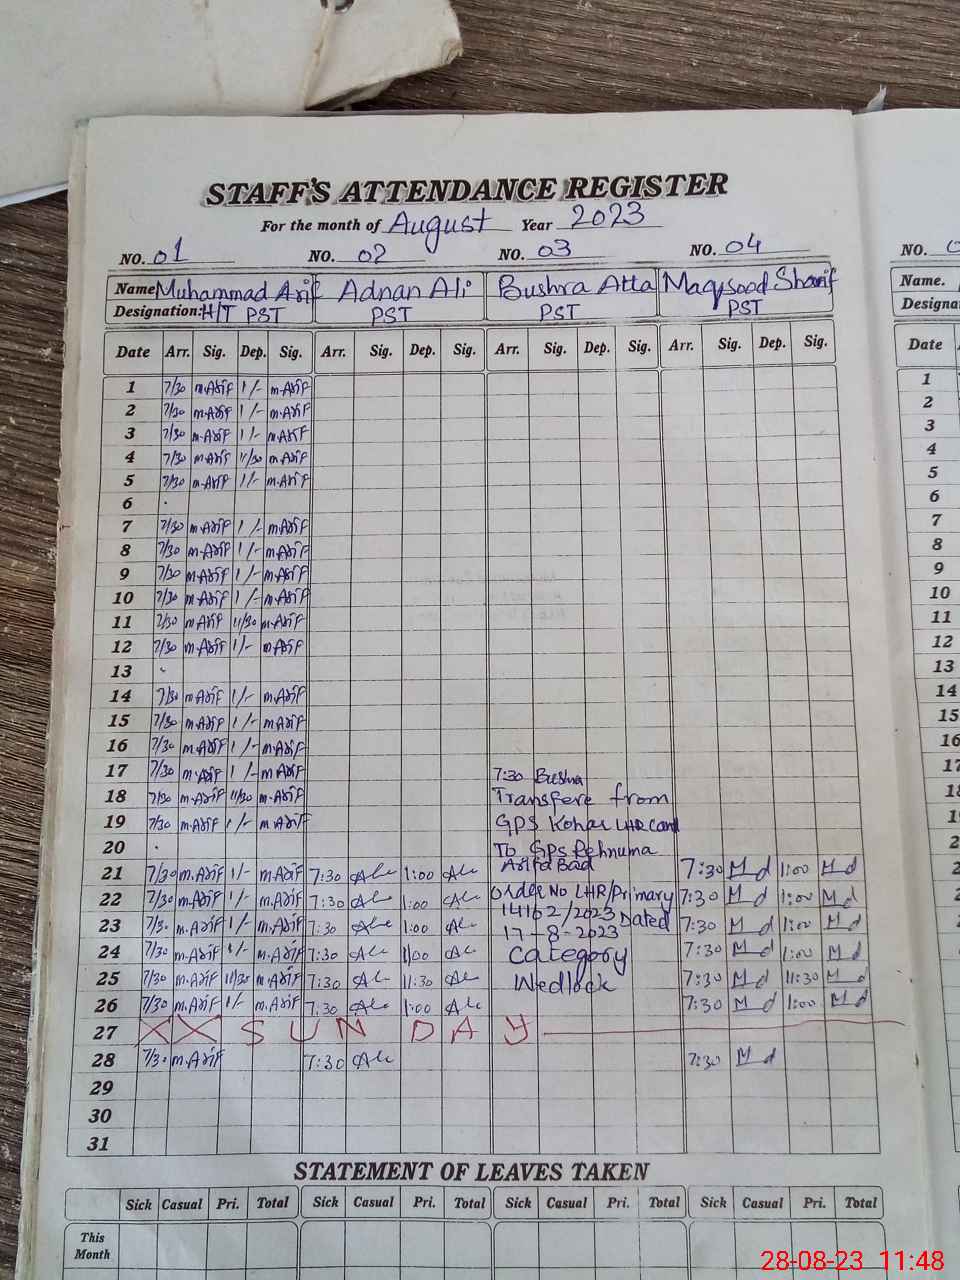 STAFF'S ATTENDANCE REGISTER
For the month of August Year 2023
NO. 01 NO. 02 NO. 03 NO. 04 NO.
Name Muhammad Arif Adnan Ali Bushra Atta Maqsood Sharif Name.
Designation: H/T PST PST PST PST
Date Arr. Sig. Dep. Sig. Arr. Sig. Dep. Sig. Arr. Sig. Dep. Sig. Arr. Sig. Dep. Sig. Date
1 7/30 m.Arif 1/- m.Arif 1
2 7/30 m.Arif 1/- m.Arif 2
3 7/30 m.Arif 1/- m.Arif 3
4 7/30 m.Arif 11/30 m.Arif 4
5 7/30 m.Arif 1/- m.Arif 5
6 6
7 7/30 m.Arif 1/- m.Arif 7
8 7/30 m.Arif 1/- m.Arif 8
9 7/30 m.Arif 1/- m.Arif 9
10 7/30 m.Arif 1/- m.Arif 10
11 7/30 m.Arif 11/30 m.Arif 11
12 7/30 m.Arif 1/- m.Arif 12
13 13
14 7/30 m.Arif 1/- m.Arif 14
15 7/30 m.Arif 1/- m.Arif 15
16 7/30 m.Arif 1/- m.Arif
17 7/30 m.Arif 1/- m.Arif 7:30 Bushra
18 7/30 m.Arif 11/30 m.Arif Transfere from
19 7/30 m.Arif 1/- m.Arif GPS Kohar LHR Cant
20 To GPS Rehnuma
Arifa Bad
21 7/30 m.Arif 1/- m.Arif 7:30 1:00 7:30 M d 1:00 M d
22 7/30 m.Arif 1/- m.Arif 7:30 1:00 Order No LHR/Primary 7:30 M d 1:00 M d
23 7/30 m.Arif 1/- m.Arif 7:30 1:00 14162/2023 Dated 7:30 M d 1:00 M d
17-8-2023
24 7/30 m.Arif 1/- m.Arif 7:30 1:00 Category 7:30 M d 1:00 M d
25 7/30 m.Arif 11/30 m.Arif 7:30 11:30 Wedlock 7:30 M d 11:30 M d
26 7/30 m.Arif 1/- m.Arif 7:30 1:00 7:30 M d 1:00 M d
27 X X S U N D A Y
28 7/30 m.Arif 7:30 7:30 M d
29
30
31
STATEMENT OF LEAVES TAKEN
Sick Casual Pri. Total Sick Casual Pri. Total Sick Casual Pri. Total Sick Casual Pri. Total
This Month
28-08-23 11:48